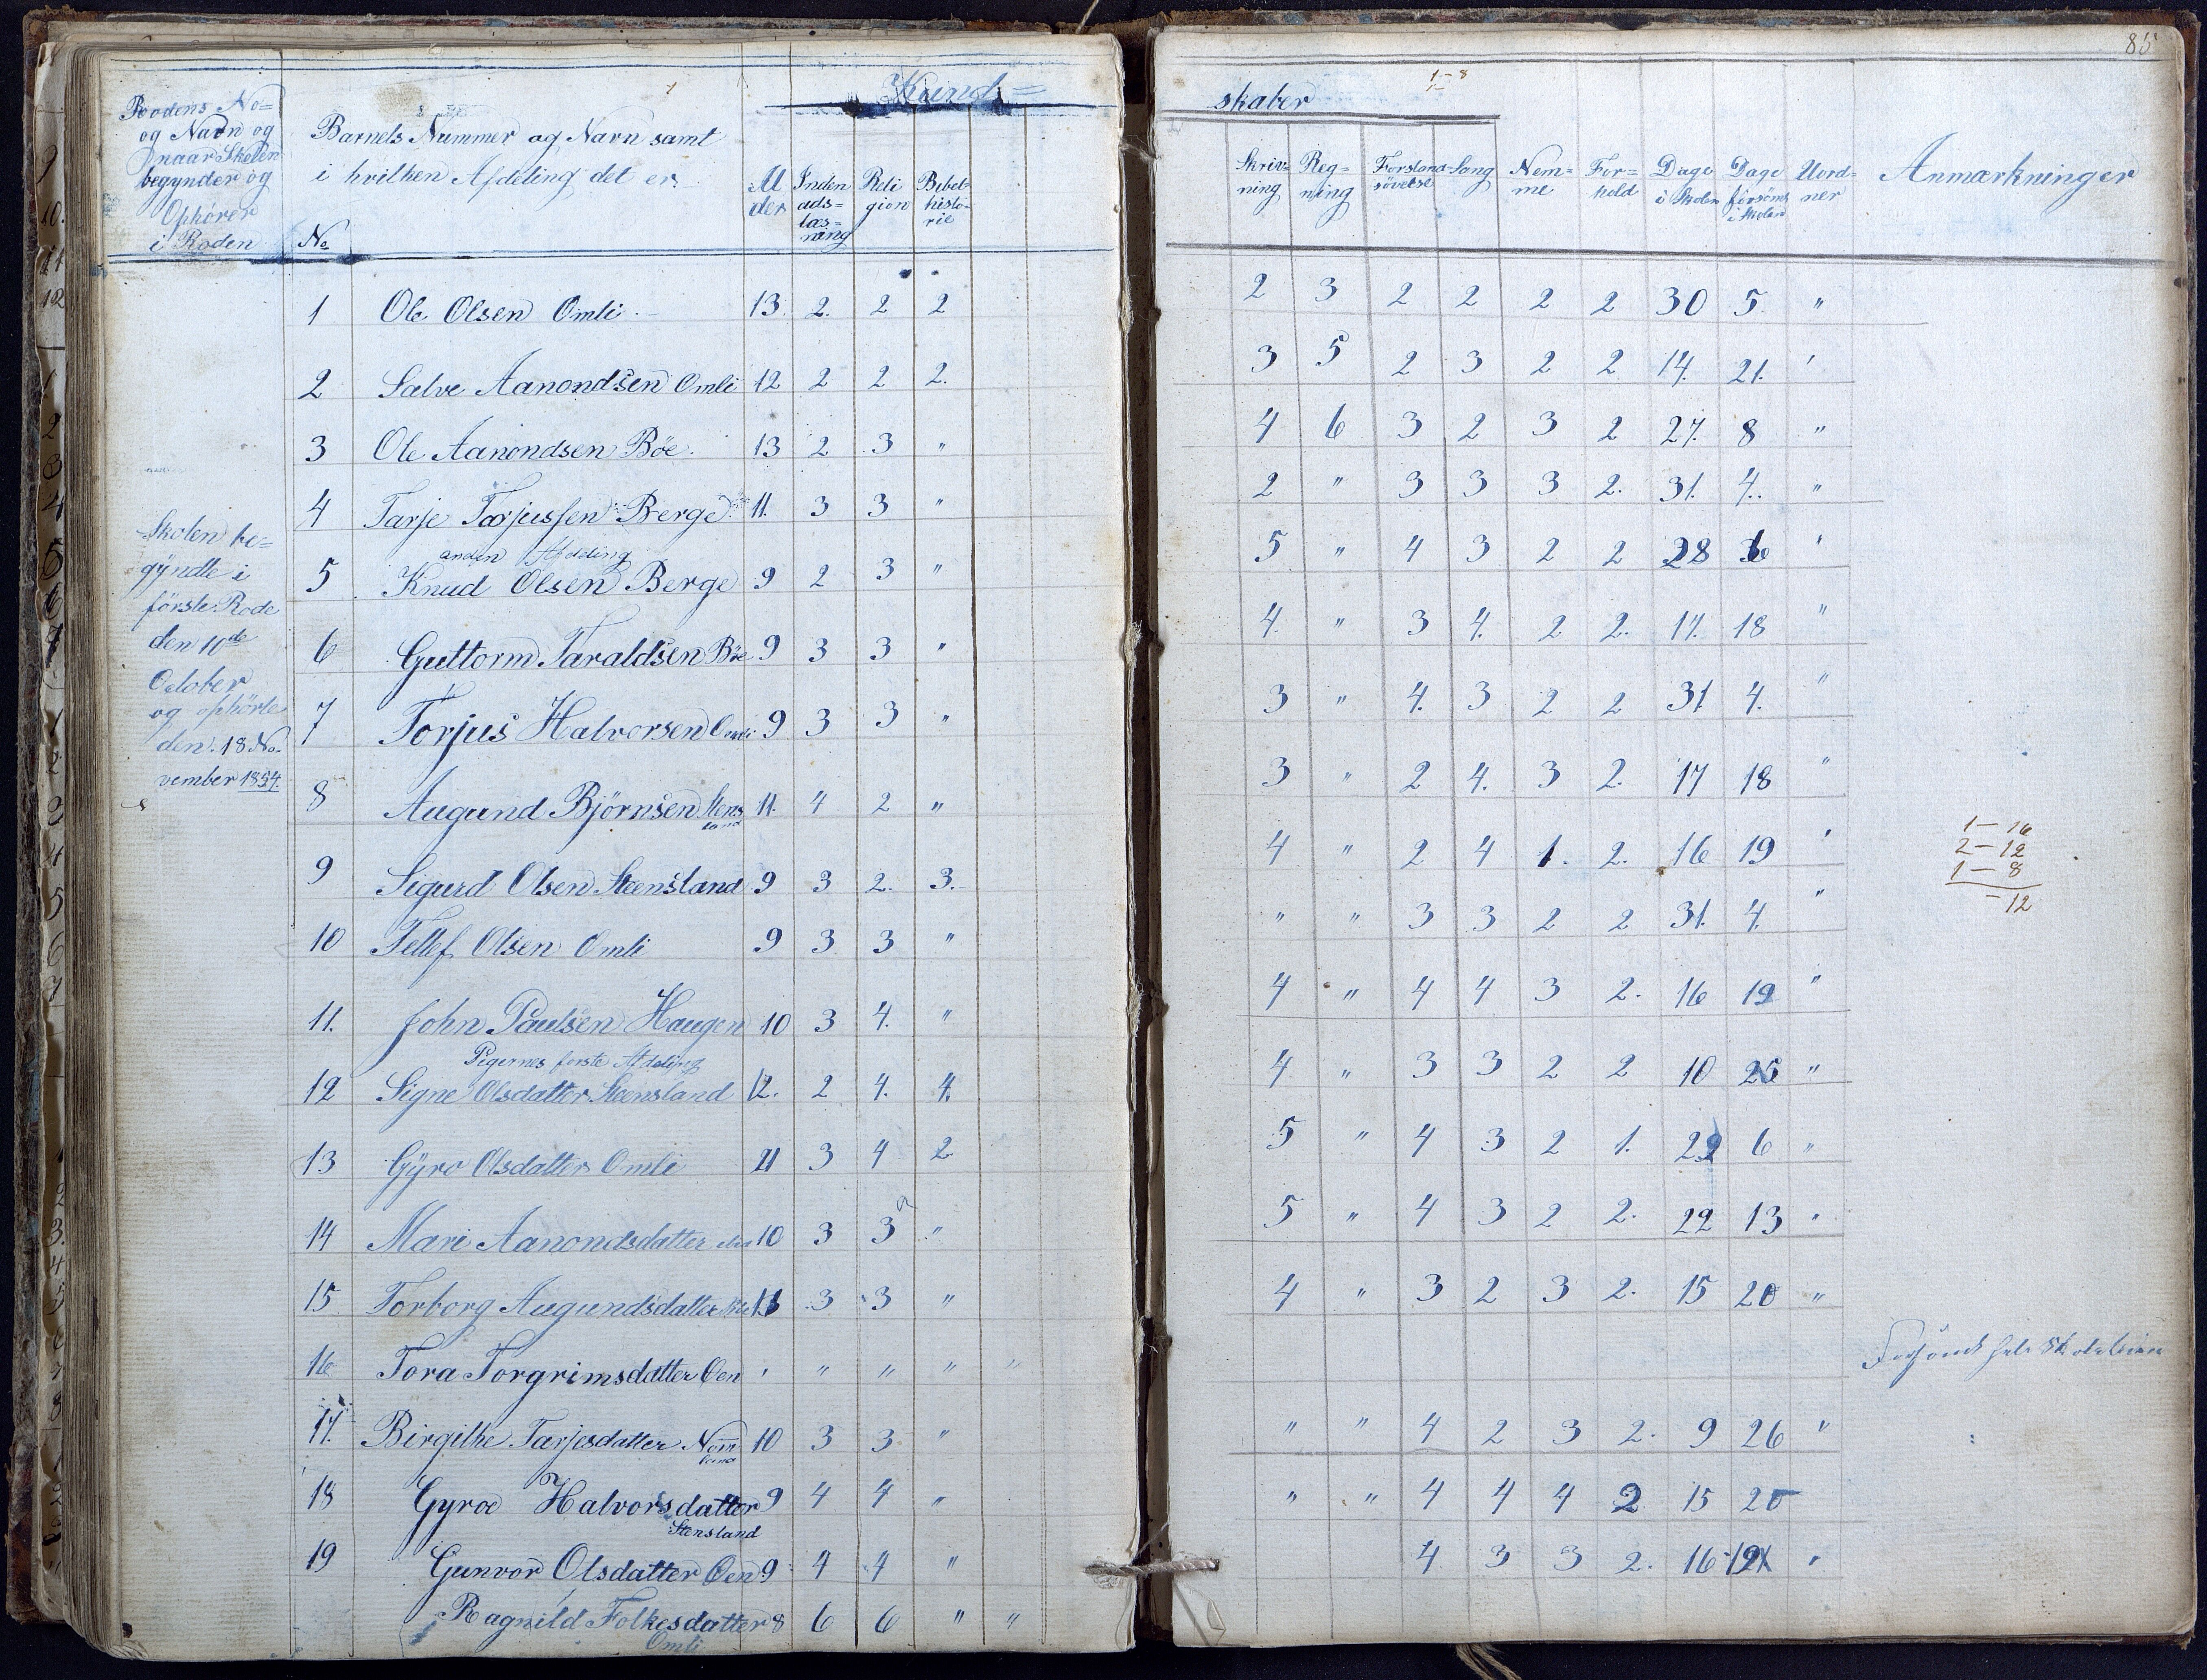 85
Kund=
skaber
1-8
Roodens No=
og Navn og
naar Skolen
begynder og
Ophörer
i Roden
Barnets Nummer og Navn samt
i hvilken Afdeling det er.
No
Al
der
Inden
ads=
læs=
ning
Reli
gion
Bibel=
histo=
rie
Skriv=
ning
Reg=
ning
Forstands
sövelse
Sang
Nem=
me
For=
hold
Dage
i Skolen
Dage
forsömt
i Skolen
Uord=
ner
Anmærkninger
Skolen be=
gyndte i
förste Rode
den 10de
October
og ophörte
den 18 No
vember 1854.
1 Ole Olsen Omli 13 2. 2 2 2 3 2 2 2 2 30 5 "
2 Salve Aanondsen Omli 12 2 2 2. 3 5 2 3 2 2 14. 21. "
3 Ole Aanondsen Böe 13 2 3 " 4 6 3 2 3 2 27. 8 "
4 Tarje Torjussen Berge 11. 3 3 " 2 " 3 3 3 2. 31. 4. "
anden Afdeling
5 Knud Olsen Berge 9 2 3 " 5 " 4 3 2 2 28 "
6 Guttorm Taraldsen Böe 9 3 3 " 4. " 3 4. 2 2. 17. 18 "
7 Torjus Halvorsen Omli 9 3 3 " 3 " 4. 3 2 2 31 4. "
8 Augund Björnsen Stens
land 11. 4 2 " 3 " 2 4. 3 2. 17 18 "
9 Sigurd Olsen Steensland 9 3 2. 3. 4 " 2 4 1. 2. 16 19 "
1-16
2-12
1-8
-12
10 Tellef Olsen Omli 9 3 3 " " " 3 3 2 2 31. 4. "
11. John Paulsen Haugen 10 3 4. " 4 " 4 4 3 2. 16 19 "
Pigernes förste Afdeling
12 Signe Olsdatter Steensland 12. 2 4. 4. 4 " 3 3 2 2 10 25 "
13 Gÿro Olsdatter Omli 11 3 4 2 5 " 4 3 2 1. 29 6 "
14 Mari Aanondsdatter 10 3 3 " 5 " 4 3 2 2. 22 13 "
15 Torborg Augundsdatter 3 3 " 4 " 3 2 3 2. 15 20 "
16 Tora Torgrimsdatter Oen " " " " " Forsömt hele Skoletiden
17. Birgithe Tarjesdatter Nom
land 10 3 3 " " " 4 2 3 2. 9 26 "
18 Gyroe Halvorsdatter
Stensland 9 4 4 " " " 4 4 4 2 15 20
19 Gunvor Olsdatter Oen 9 4 4 " 4 3 3 2. 16 19 "
Ragnild Folkesdatter
Omli 8 6 6 " "